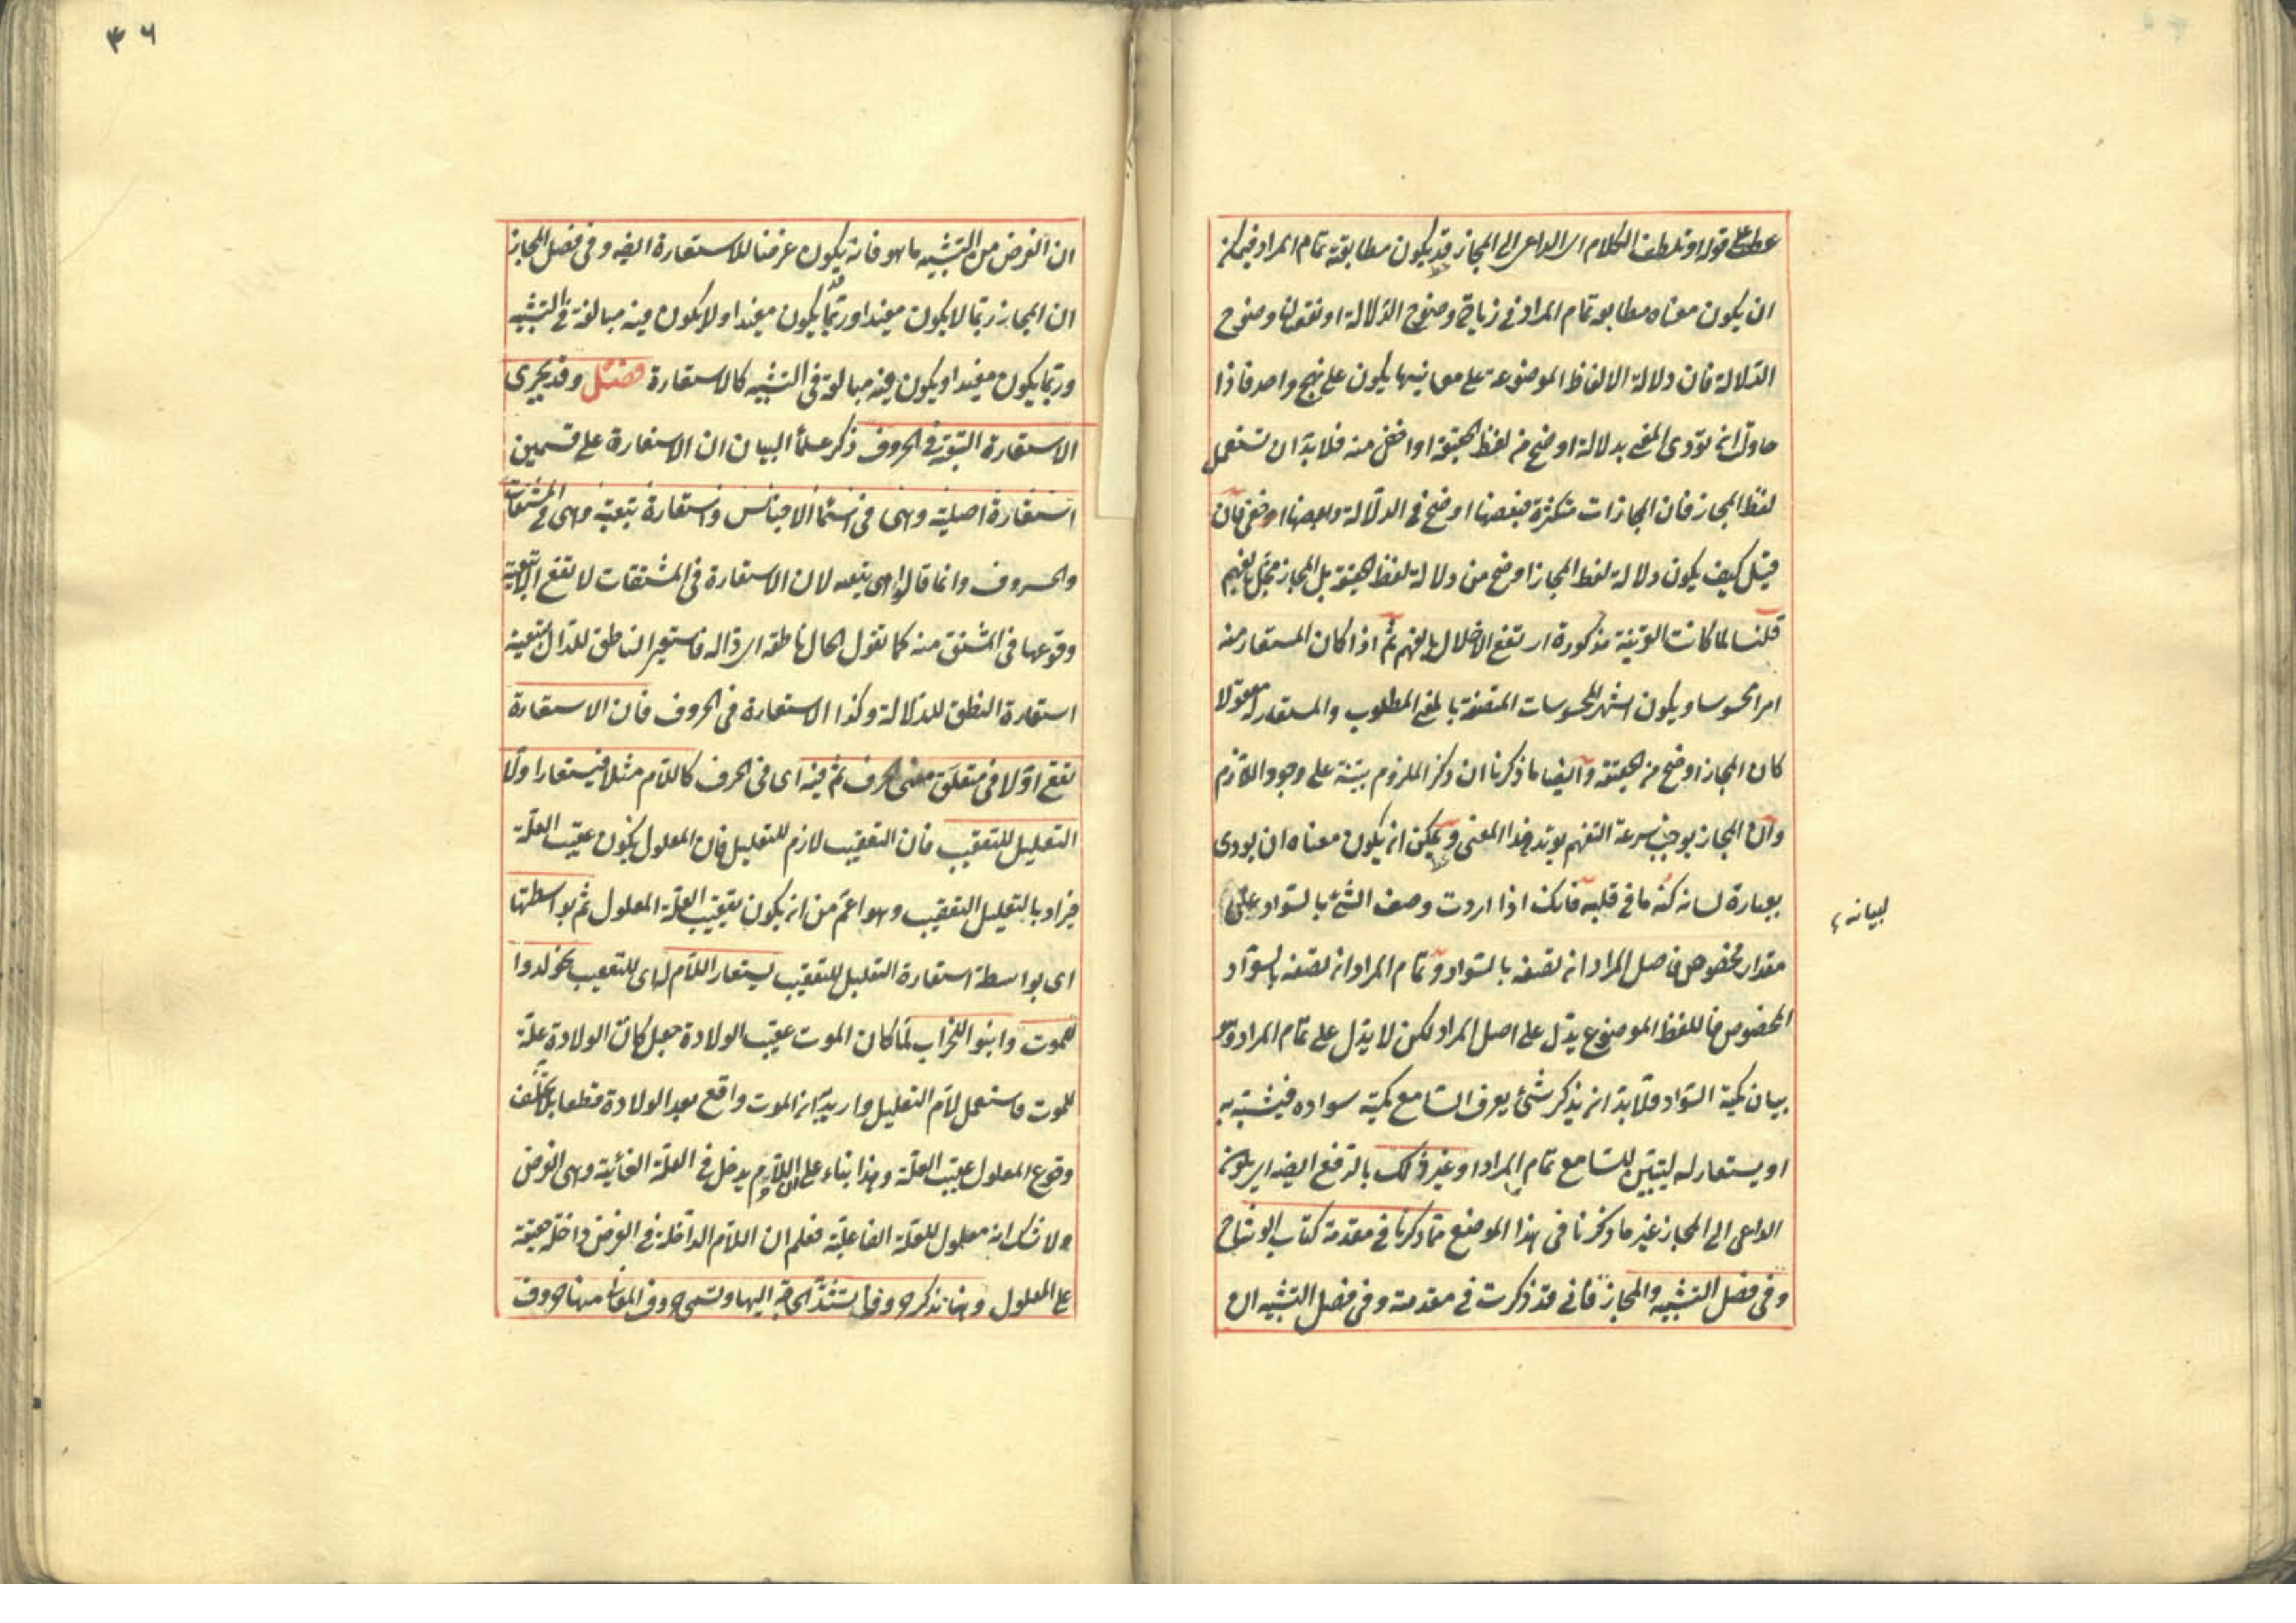 عطف على قوله او تلطف الكلام اى الداعى الى المجاز قد يكون مطابقة تمام المراد فيمكن
ان يكون معناه مطابقة تمام المراد فى زيادة وضوح الدلالة او نقصان وضوح
الدلالة فان دلالة الالفاظ الموضوعة على معانيها يكون على نهج واحد فاذا
حاول ان يؤدى المعنى بدلالة اوضح من لفظ الحقيقة او اخفى منه فلابد ان تستعمل
لفظ المجاز فان المجازات متكثرة فبعضها اوضح فى الدلالة وبعضها اخفى فان
قيل كيف يكون دلالة لفظ المجاز اوضح من دلالة لفظ الحقيقة بل المجاز مخل بالفهم
قلنا لما كانت القرينة مذكورة ارتفع الاخلال بالفهم ثم اذا كان المستعار منه
امرا محسوسا ويكون اشهر المحسوسات المتصفة بالمعنى المطلوب والمستعار له معقولا
كان المجاز اوضح من الحقيقة وايضا ما ذكرنا ان ذكر الملزوم بينة على وجود اللازم
وان المجاز يوجب سرعة التفهم يؤيد هذا المعنى ويمكن ان يكون معناه ان يودى
بعبارة لسانه كنه ما فى قلبه فانك اذا اردت وصف الشئ بالسواد على
مقدار مخصوص فاصل المراد انه تصفه بالسواد وتمام المراد انه تصفه بالسواد
المخصوص فاللفظ الموضوع يدل على اصل المراد لكن لا يدل على تمام المراد وهو
بيان كمية السواد فلابد ان يذكر شئ يعرف السامع كمية سواده فيشبه به
او يستعار له ليتبين للسامع تمام المراد او غير ذلك بالرفع ايضا اى يكون
الداعى الى المجاز غير ما ذكرنا فى هذا الموضع مما ذكرنا فى مقدمة كتاب الوشاح
وفى فصل التشبيه والمجاز فانى قد ذكرت فى مقدمته وفى فصل التشبيه ان
لبيانه
٣٦
ان الغرض من التشبيه ما هو فانه يكون غرضا للاستعارة ايضا وفى فصل المجاز
ان المجاز ربما لا يكون مفيدا وربما يكون مفيدا ولا يكون فيه مبالغة فى التشبيه
وربما يكون مفيدا ويكون فيه مبالغة فى التشبيه كالاستعارة فصل وقد يجرى
الاستعارة التبعية فى الحروف ذكر علماء البيان ان الاستعارة على قسمين
استعارة اصلية وهى فى اسماء الاجناس واستعارة تبعية وهى فى المشتقات
والحروف وانما قالوا هى تبعية لان الاستعارة فى المشتقات لا تقع الا بتبعية
وقوعها فى المشتق منه كما تقول الحال ناطقة اى دالة فاستعير الناطق للدال بتبعية
استعارة النطق للدلالة وكذا الاستعارة فى الحروف فان الاستعارة
تقع اولا فى متعلق معنى الحرف ثم فيه اى فى الحرف كاللام مثلا فيستعار اولا
التعليل للتعقيب فان التعقيب لازم للتعليل فان المعلول يكون عقيب العلة
فيراد بالتعليل التعقيب وهو اعم من ان يكون تعقيب العلة المعلول ثم بواسطتها
اى بواسطة استعارة التعليل للتعقيب يستعار اللام له اى للتعقيب نحو لدوا
للموت وابنوا للخراب لما كان الموت عقيب الولادة جعل كان الولادة علة
للموت فاستعمل لام التعليل واريد ان الموت واقع بعد الولادة قطعا بلا تخلف
وقوع المعلول عقيب العلة وهذا بناء على ان اللام يدخل فى العلة الغائية وهى الغرض
ولا شك انه معلول للعلة الفاعلية فعلم ان اللام الداخلة فى الغرض داخلة حقيقة
على المعلول وهنا نذكر حروفا تشتد الحاجة اليها وتسمى حروف المعانى منها حروف